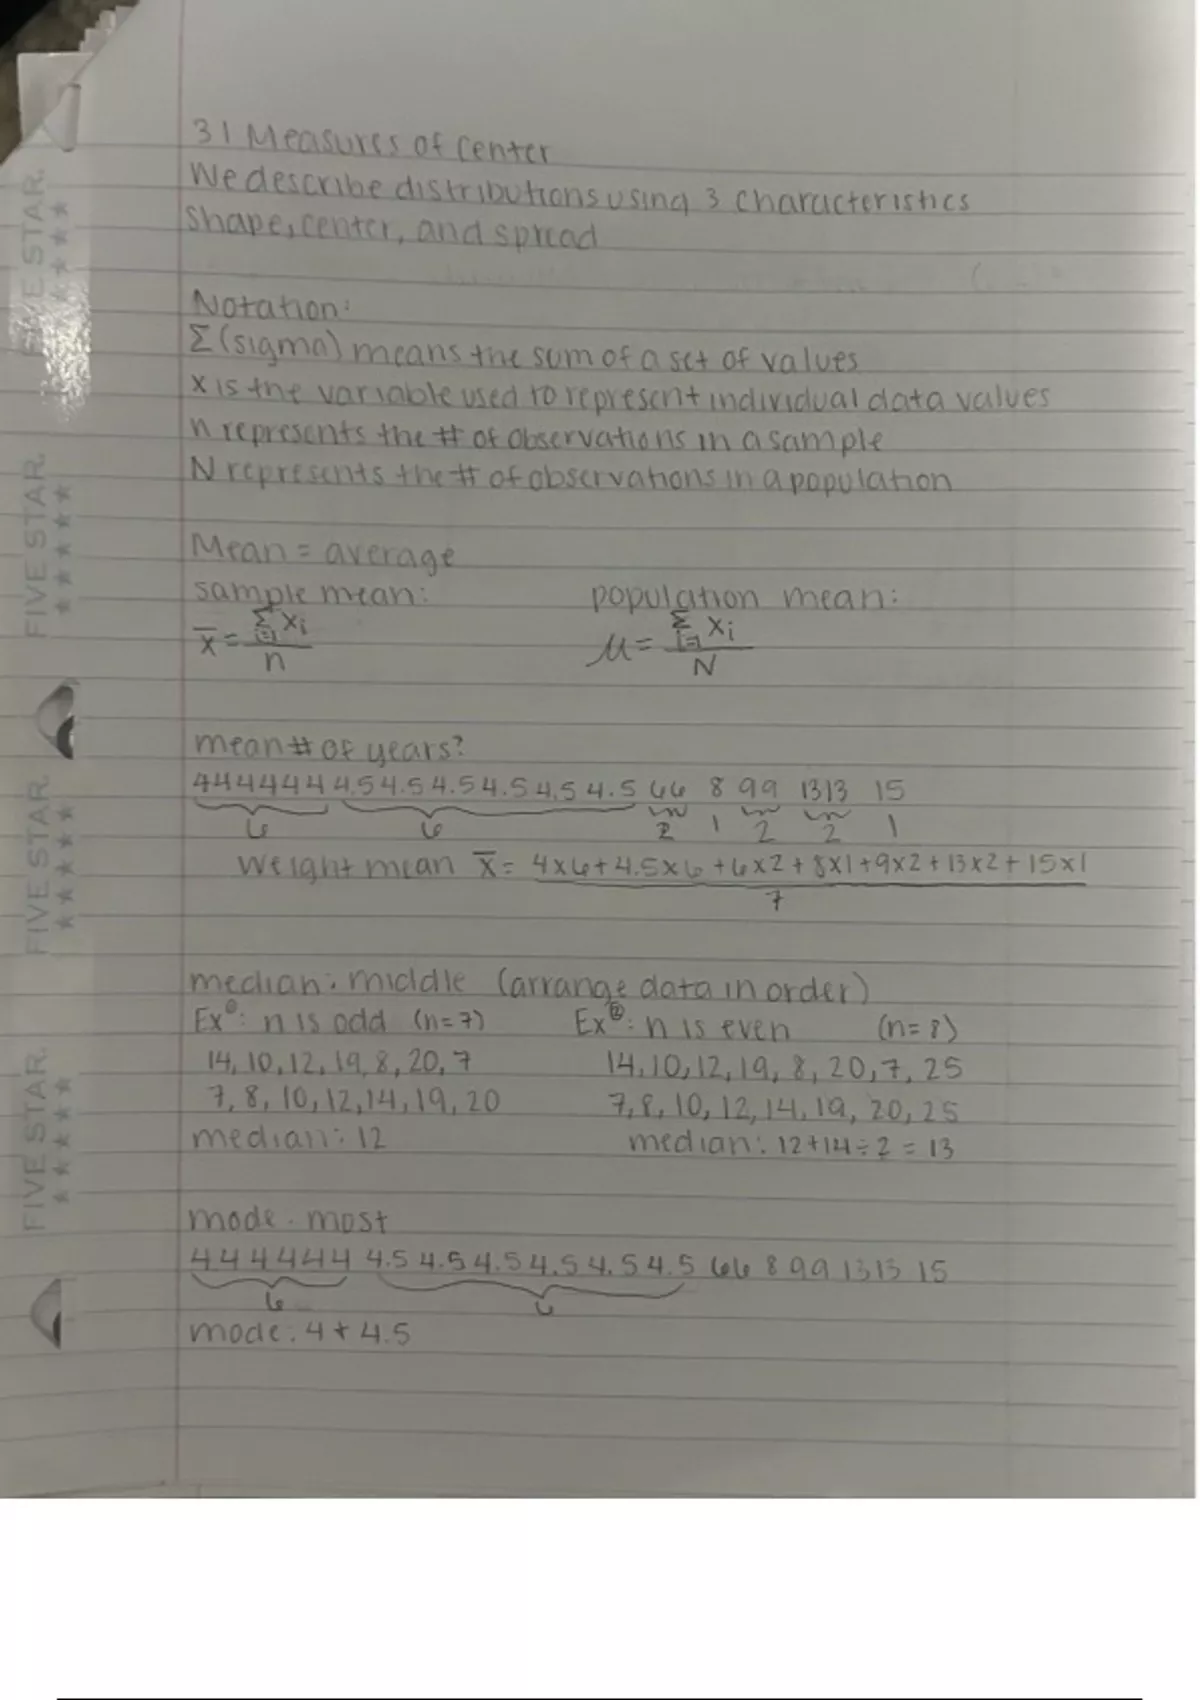 3.1 Measures of Center
We describe distributions using 3 characteristics
Shape, center, and spread
Notation:
Σ (sigma) means the sum of a set of values
x is the variable used to represent individual data values
n represents the # of observations in a sample
N represents the # of observations in a population
Mean = average
sample mean: population mean:
x̄ = Σ i=1 xi / n μ = Σ i=1 xi / N
mean # of years?
4 4 4 4 4 4 4.5 4.5 4.5 4.5 4.5 4.5 6 6 8 9 9 13 13 15
6 6 2 1 2 2 1
Weight mean x̄ = 4x6+4.5x6+6x2+8x1+9x2+13x2+15x1
7
median: middle (arrange data in order)
Ex①: n is odd (n=7) Ex②: n is even (n=8)
14, 10, 12, 19, 8, 20, 7 14, 10, 12, 19, 8, 20, 7, 25
7, 8, 10, 12, 14, 19, 20 7, 8, 10, 12, 14, 19, 20, 25
median: 12 median: 12+14÷2 = 13
mode - most
4 4 4 4 4 4 4.5 4.5 4.5 4.5 4.5 4.5 6 6 8 9 9 13 13 15
6 6
mode: 4 + 4.5
FIVE STAR
FIVE STAR
FIVE STAR
FIVE STAR